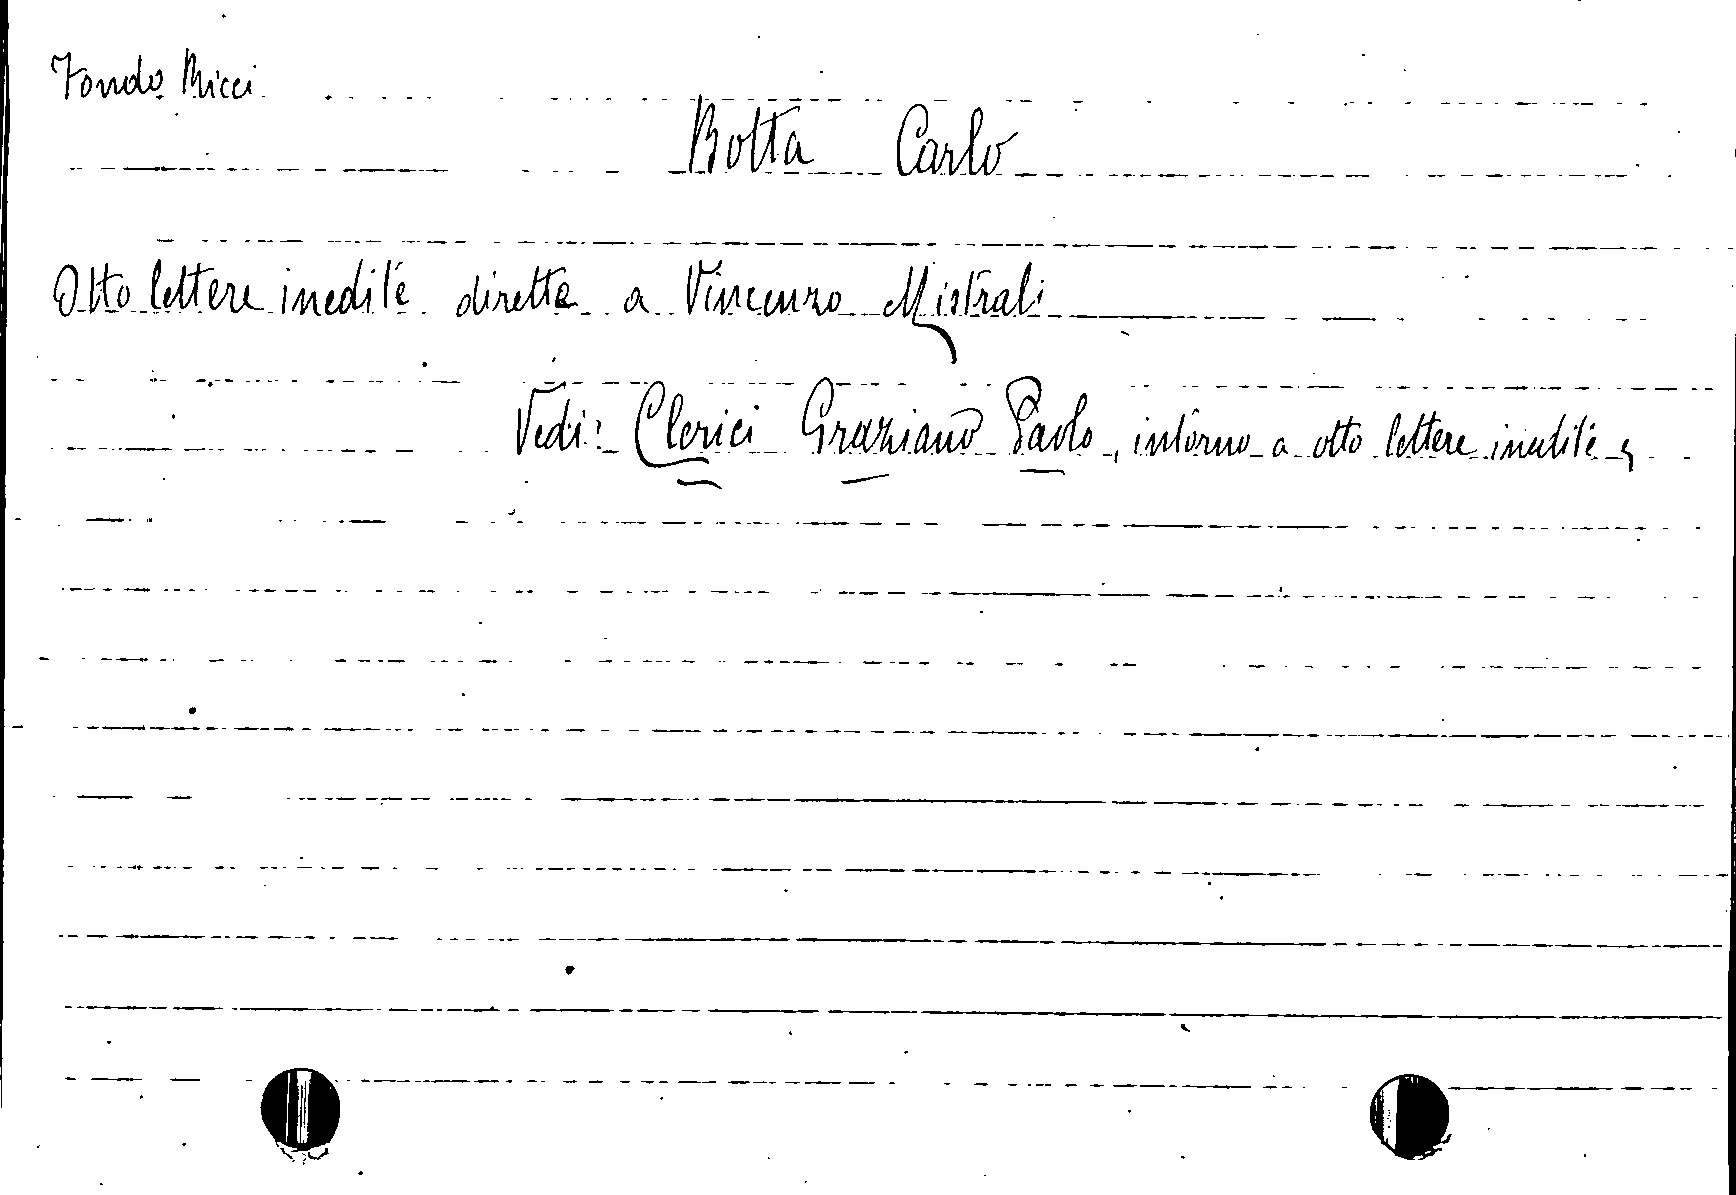 Fondo Ricci
Botta Carlo
Otto lettere inedite dirette a Vincenzo Mistrali
Vedi: Clerici Graziano Paolo, intorno a otto lettere inedite,